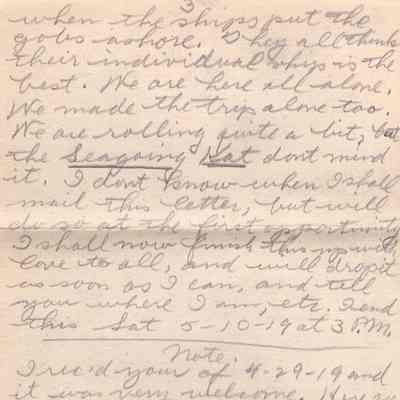 3
when the ships put the
gobs ashore. They all think
their individual ships is the
best. We are here all alone.
We made the trip alone too.
We are rolling quite a bit, but
the Seagoing Nat dont mind
it. I dont know when I shall
mail this letter, but will
do so at the first opportunity
I shall now finish this up with
love to all, and will drop it
as soon as I can, and tell
you where I am, etc. I end
this Sat 5-10-19 at 3 P.M.
Note.
I rec'd your of 4-29-19 and
it was very welcome.